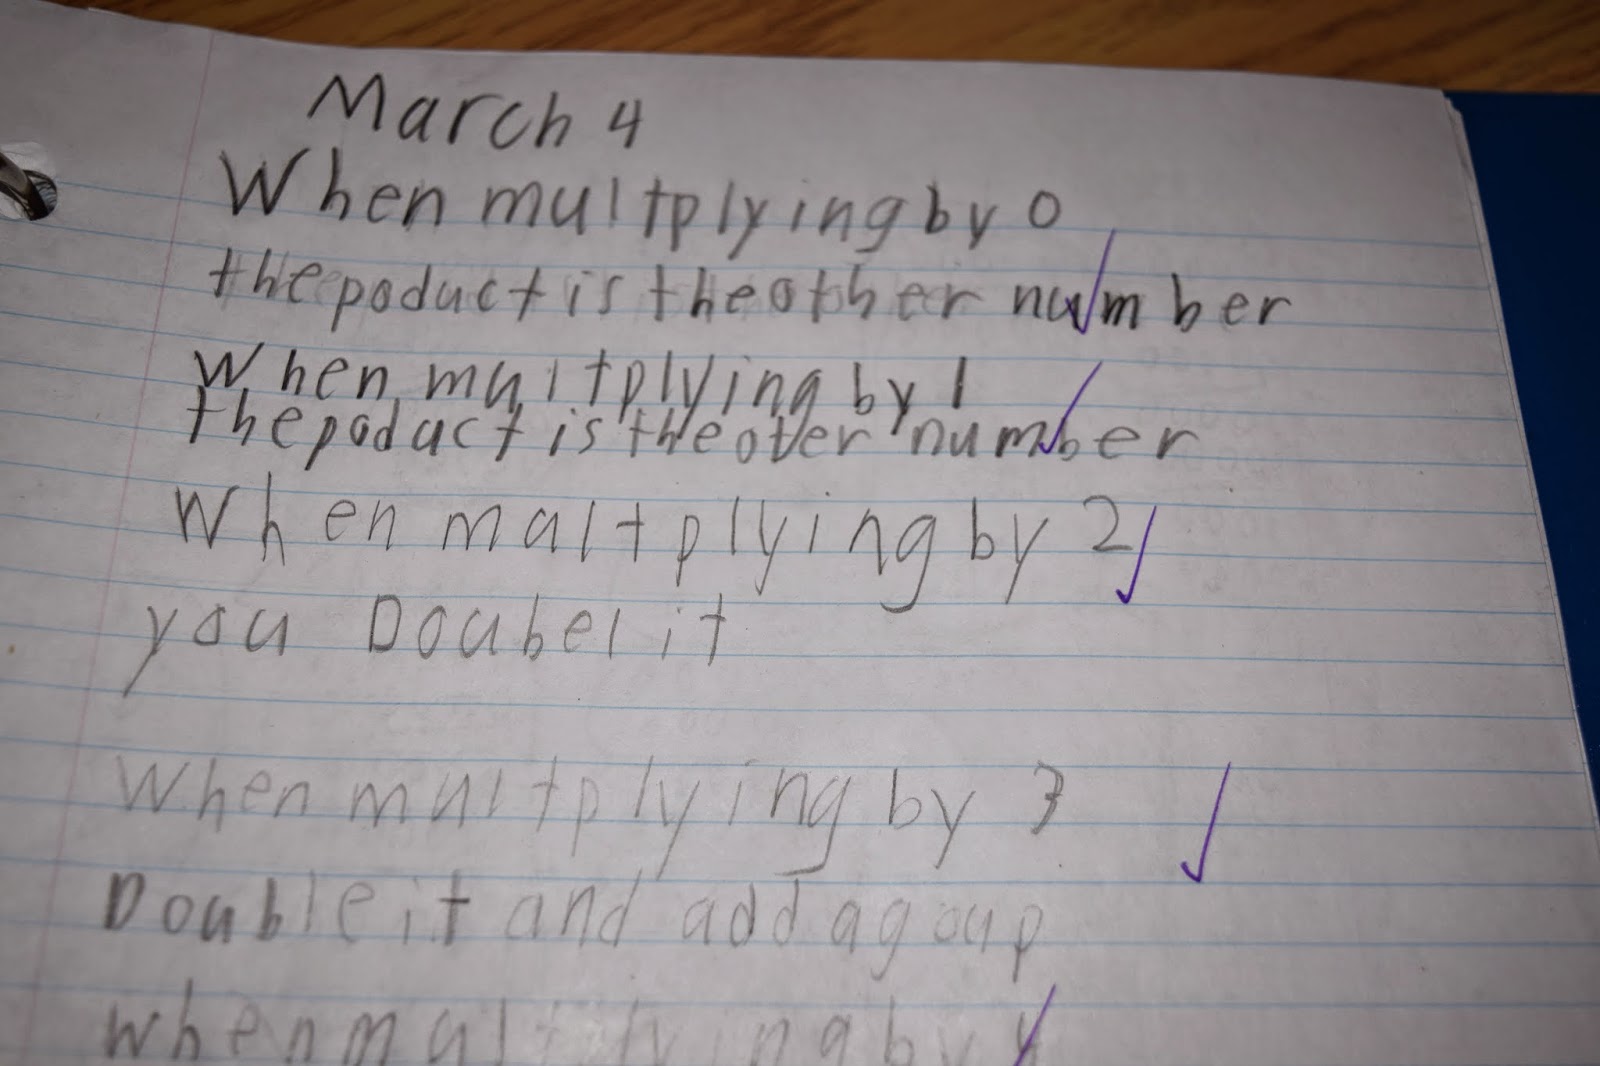 March 4
When multplying by 0
the poduct is the other number
When multplying by 1
the poduct is the over number
When multplying by 2
you Doubel it
When multplying by 3
Double it and add a goup
When multplying by 4